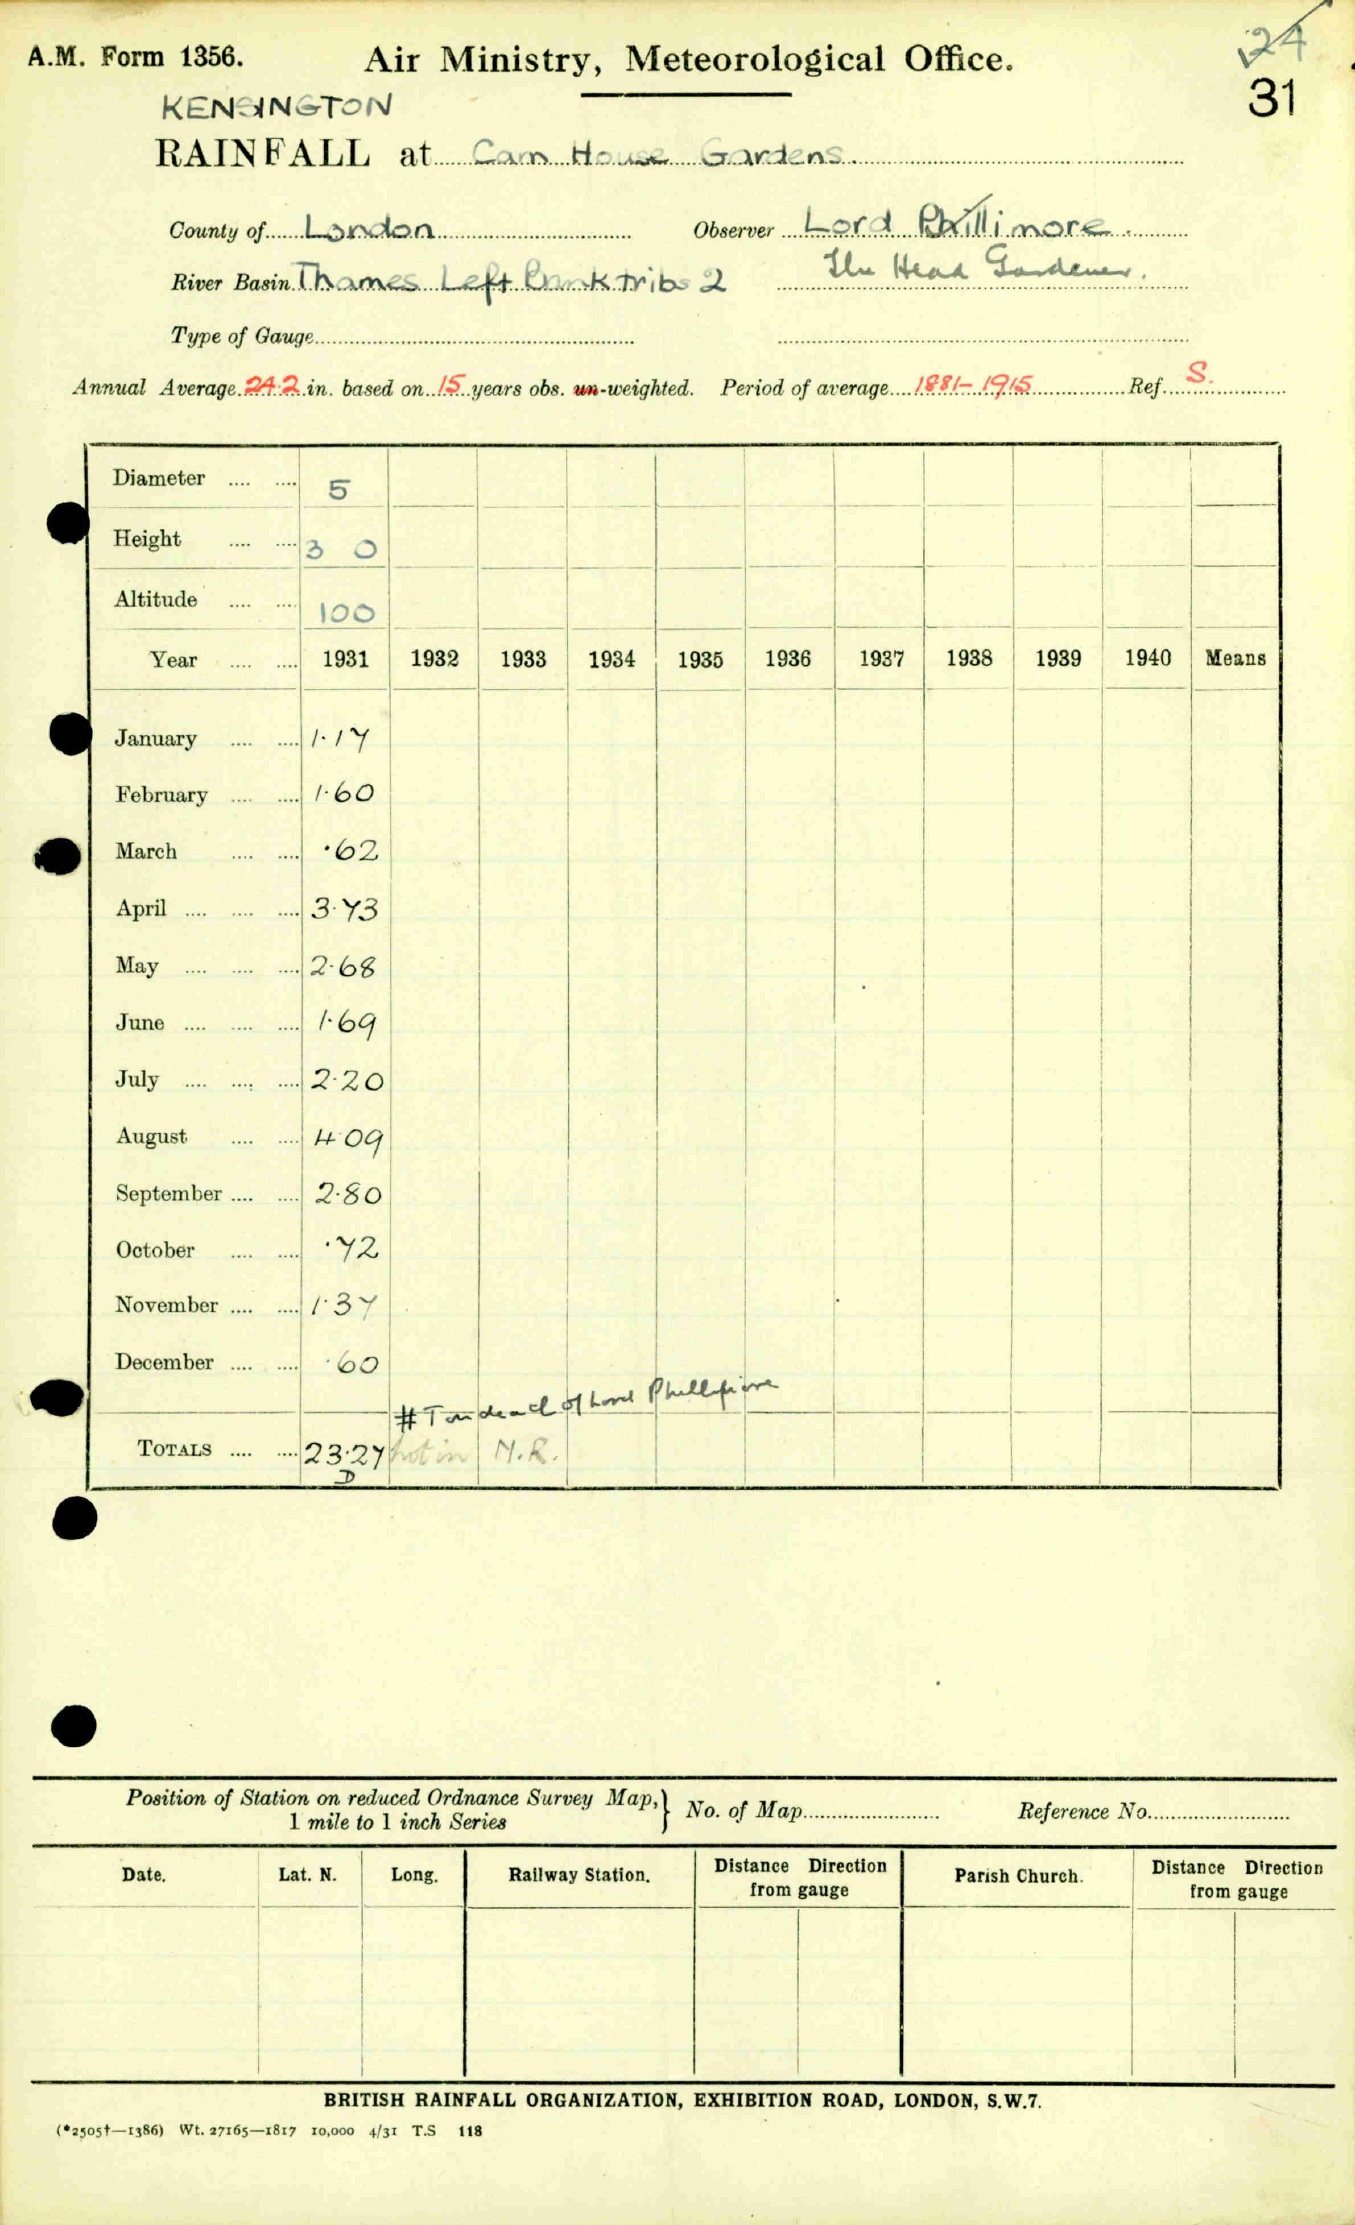 24
A.M. Form 1356. Air Ministry, Meteorological Office.
31
KENSINGTON
RAINFALL at Cam House Gardens.
County of London Observer Lord Phillimore.
River Basin Thames Left Bank tribs 2 The Head Gardener.
Type of Gauge
Annual Average 24.2 in. based on 15 years obs. un-weighted. Period of average 1881-1915 Ref. S.
Diameter .... .... 5
Height .... .... 3 0
Altitude .... .... 100
Year .... .... 1931 1932 1933 1934 1935 1936 1937 1938 1939 1940 Means
January .... .... 1.17
February .... .... 1.60
March .... .... .62
April .... .... .... 3.73
May .... .... .... 2.68
June .... .... .... 1.69
July .... .... .... 2.20
August .... .... 4.09
September .... .... 2.80
October .... .... .72
November .... .... 1.37
December .... .... .60
of Lord
TOTALS .... .... 23.27 not in N.R.
D
Position of Station on reduced Ordnance Survey Map, } No. of Map Reference No.
1 mile to 1 inch Series
Date. Lat. N. Long. Railway Station. Distance Direction from gauge Parish Church. Distance Direction from gauge
BRITISH RAINFALL ORGANIZATION, EXHIBITION ROAD, LONDON, S.W.7.
(*2505†—1386) Wt. 27165—1817 10,000 4/31 T.S 118